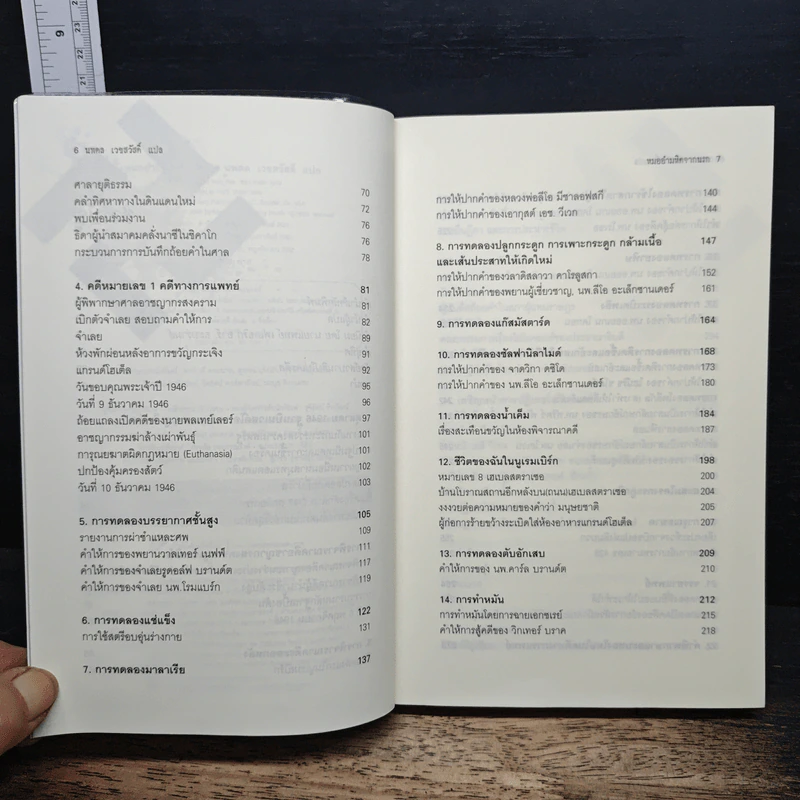 6 นพดล เวชสวัสดิ์ แปล
ศาลายุติธรรม 70
คลำทิศหาทางในดินแดนใหม่ 72
พบเพื่อนร่วมงาน 76
ธิดาผู้นำสมาคมคลั่งนาซีในชิคาโก 76
กระบวนการการบันทึกถ้อยคำในศาล 78
4. คดีหมายเลข 1 คดีทางการแพทย์ 81
ผู้พิพากษาศาลอาชญากรสงคราม 81
เบิกตัวจำเลย สอบถามคำให้การ 82
จำเลย 89
ห้วงพักผ่อนหลังอาการขวัญกระเจิง 91
แกรนด์โฮเต็ล 92
วันขอบคุณพระเจ้าปี 1946 95
วันที่ 9 ธันวาคม 1946 96
ถ้อยแถลงเปิดคดีของนายพลเทย์เลอร์ 97
อาชญากรรมฆ่าล้างเผ่าพันธุ์ 101
การุณยฆาตผิดกฎหมาย (Euthanasia) 101
ปกป้องคุ้มครองสัตว์ 102
วันที่ 10 ธันวาคม 1946 103
5. การทดลองบรรยากาศชั้นสูง 105
รายงานการผ่าชำแหละศพ 109
คำให้การของพยานวาลเทอร์ เนฟฟ์ 111
คำให้การของจำเลยรูดอล์ฟ บรานด์ต 117
คำให้การของจำเลย นพ.โรมแบร์ก 119
6. การทดลองแช่แข็ง 122
การใช้สตรีอบอุ่นร่างกาย 131
7. การทดลองมาลาเรีย 137
หมออำมหิตจากนรก 7
การให้ปากคำของหลวงพ่อลีโอ มีชาลอฟสกี 140
การให้ปากคำของเอากุสต์ เอช. วีเวก 144
8. การทดลองปลูกกระดูก การเพาะกระดูก กล้ามเนื้อ 147
และเส้นประสาทให้เกิดใหม่
การให้ปากคำของวลาดิสลาวา คาโรลูสกา 152
การให้ปากคำของพยานผู้เชี่ยวชาญ, นพ.ลีโอ อะเล็กซานเดอร์ 161
9. การทดลองแก๊สมัสตาร์ด 164
10. การทดลองซัลฟานิลาไมด์ 168
การให้ปากคำของ จาดวิกา ดซิโด 173
การให้ปากคำของ นพ.ลีโอ อะเล็กซานเดอร์ 180
11. การทดลองน้ำเค็ม 184
เรื่องสะเทือนขวัญในห้องพิจารณาคดี 187
12. ชีวิตของฉันในนูเรมเบิร์ก 198
หมายเลข 8 เฮเบลสตราเซอ 200
บ้านโบราณสถานอีกหลังบน(ถนน)เฮเบลสตราเซอ 204
งงงวยต่อความหมายของคำว่า มนุษยชาติ 205
ผู้ก่อการร้ายขว้างระเบิดใส่ห้องอาหารแกรนด์โฮเต็ล 207
13. การทดลองตับอักเสบ 209
คำให้การของ นพ.คาร์ล บรานด์ต 210
14. การทำหมัน 212
การทำหมันโดยการฉายเอกซเรย์ 215
คำให้การสู้คดีของ วิกเทอร์ บราค 218
9
23
22
21